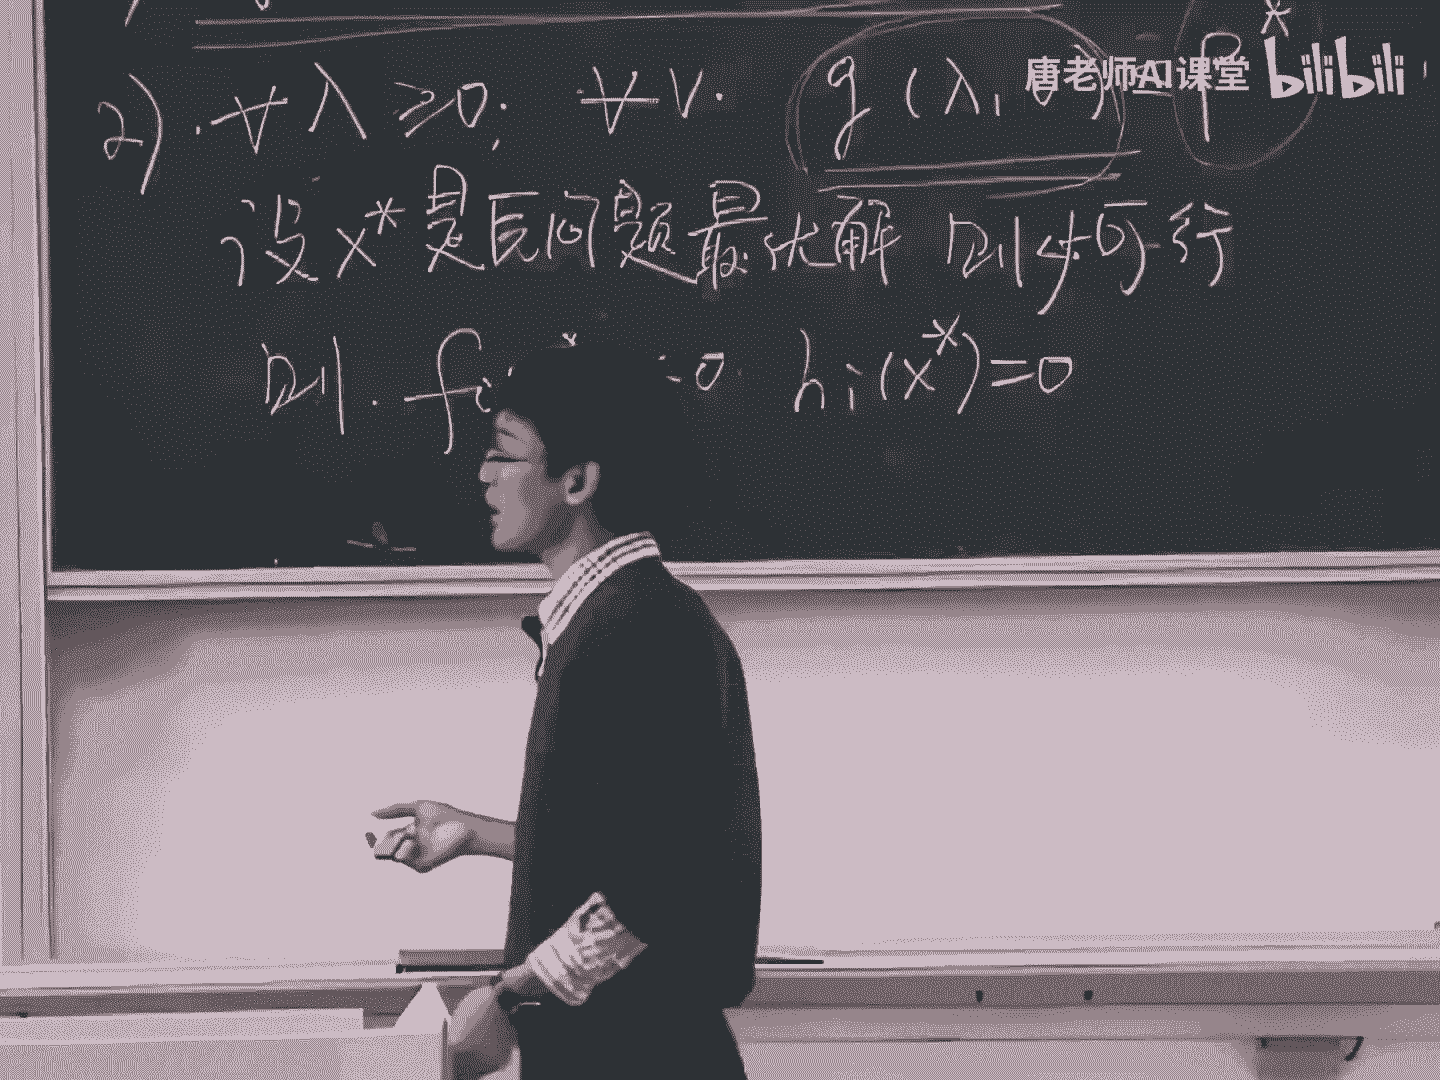 唐老师AI课堂 bilibili
2) ∀λ≥0; ∀v. g(λ, v) ≤ p*
设x*是原问题最优解 则必可行
则. fi(x*)≤0. hi(x*)=0